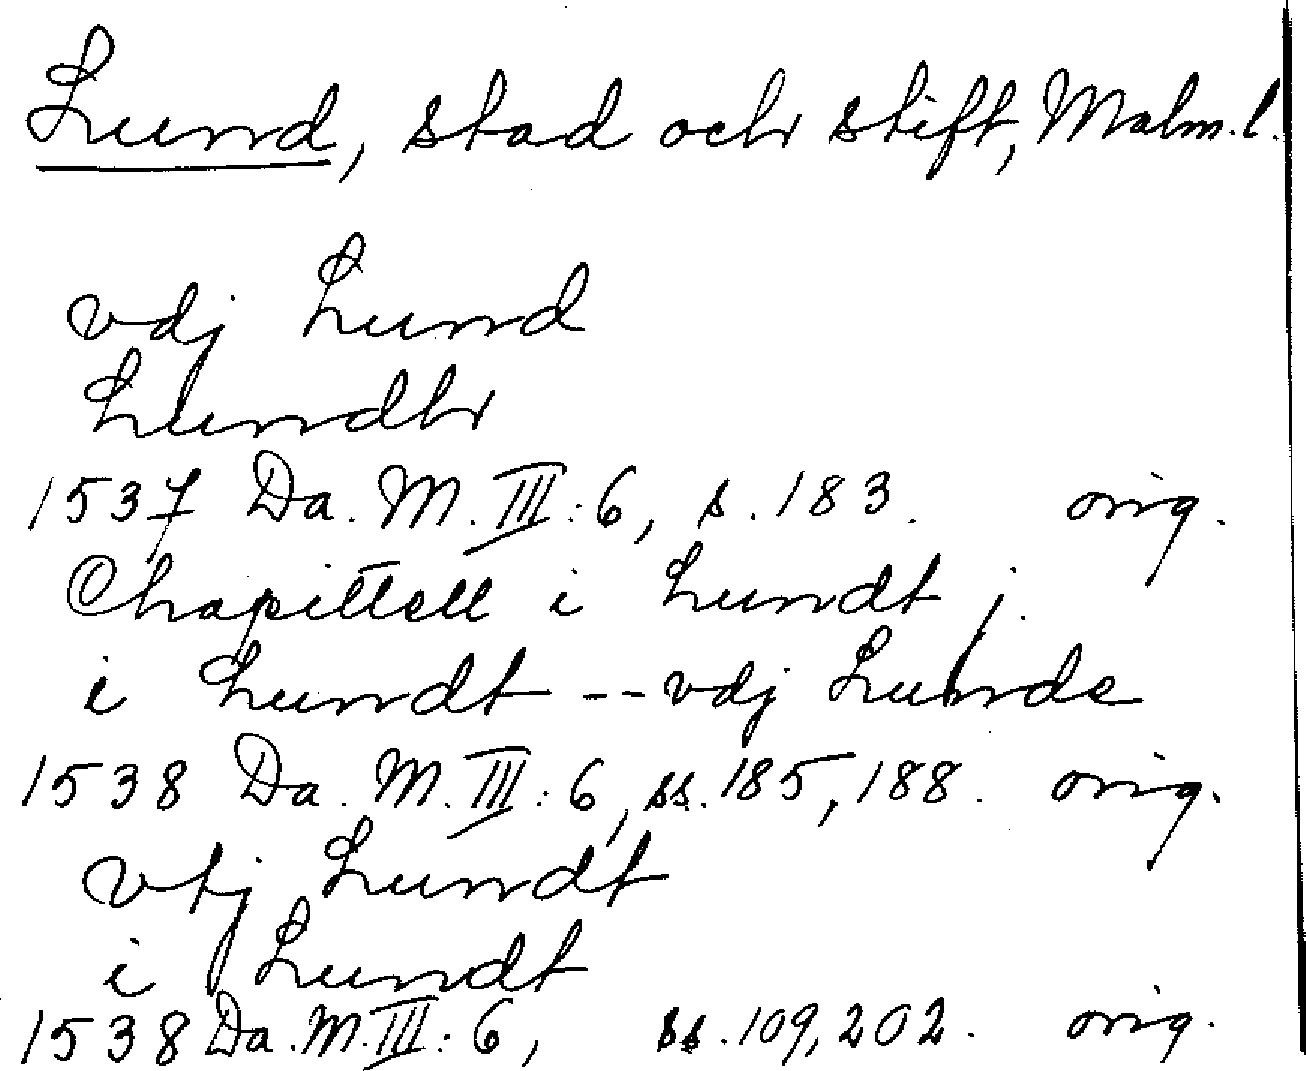 Lund, stad och stift, Malm.l.
vdj Lund
Lundh
1537 Da. M. III:6, s. 183. orig.
Chapittell i Lundt;
i Lundt -- vdj Lunde
1538 Da. M. III:6, ss. 185, 188. orig.
vtj Lundt
i Lundt
1538 Da. M. III:6, ss. 109, 202. orig.